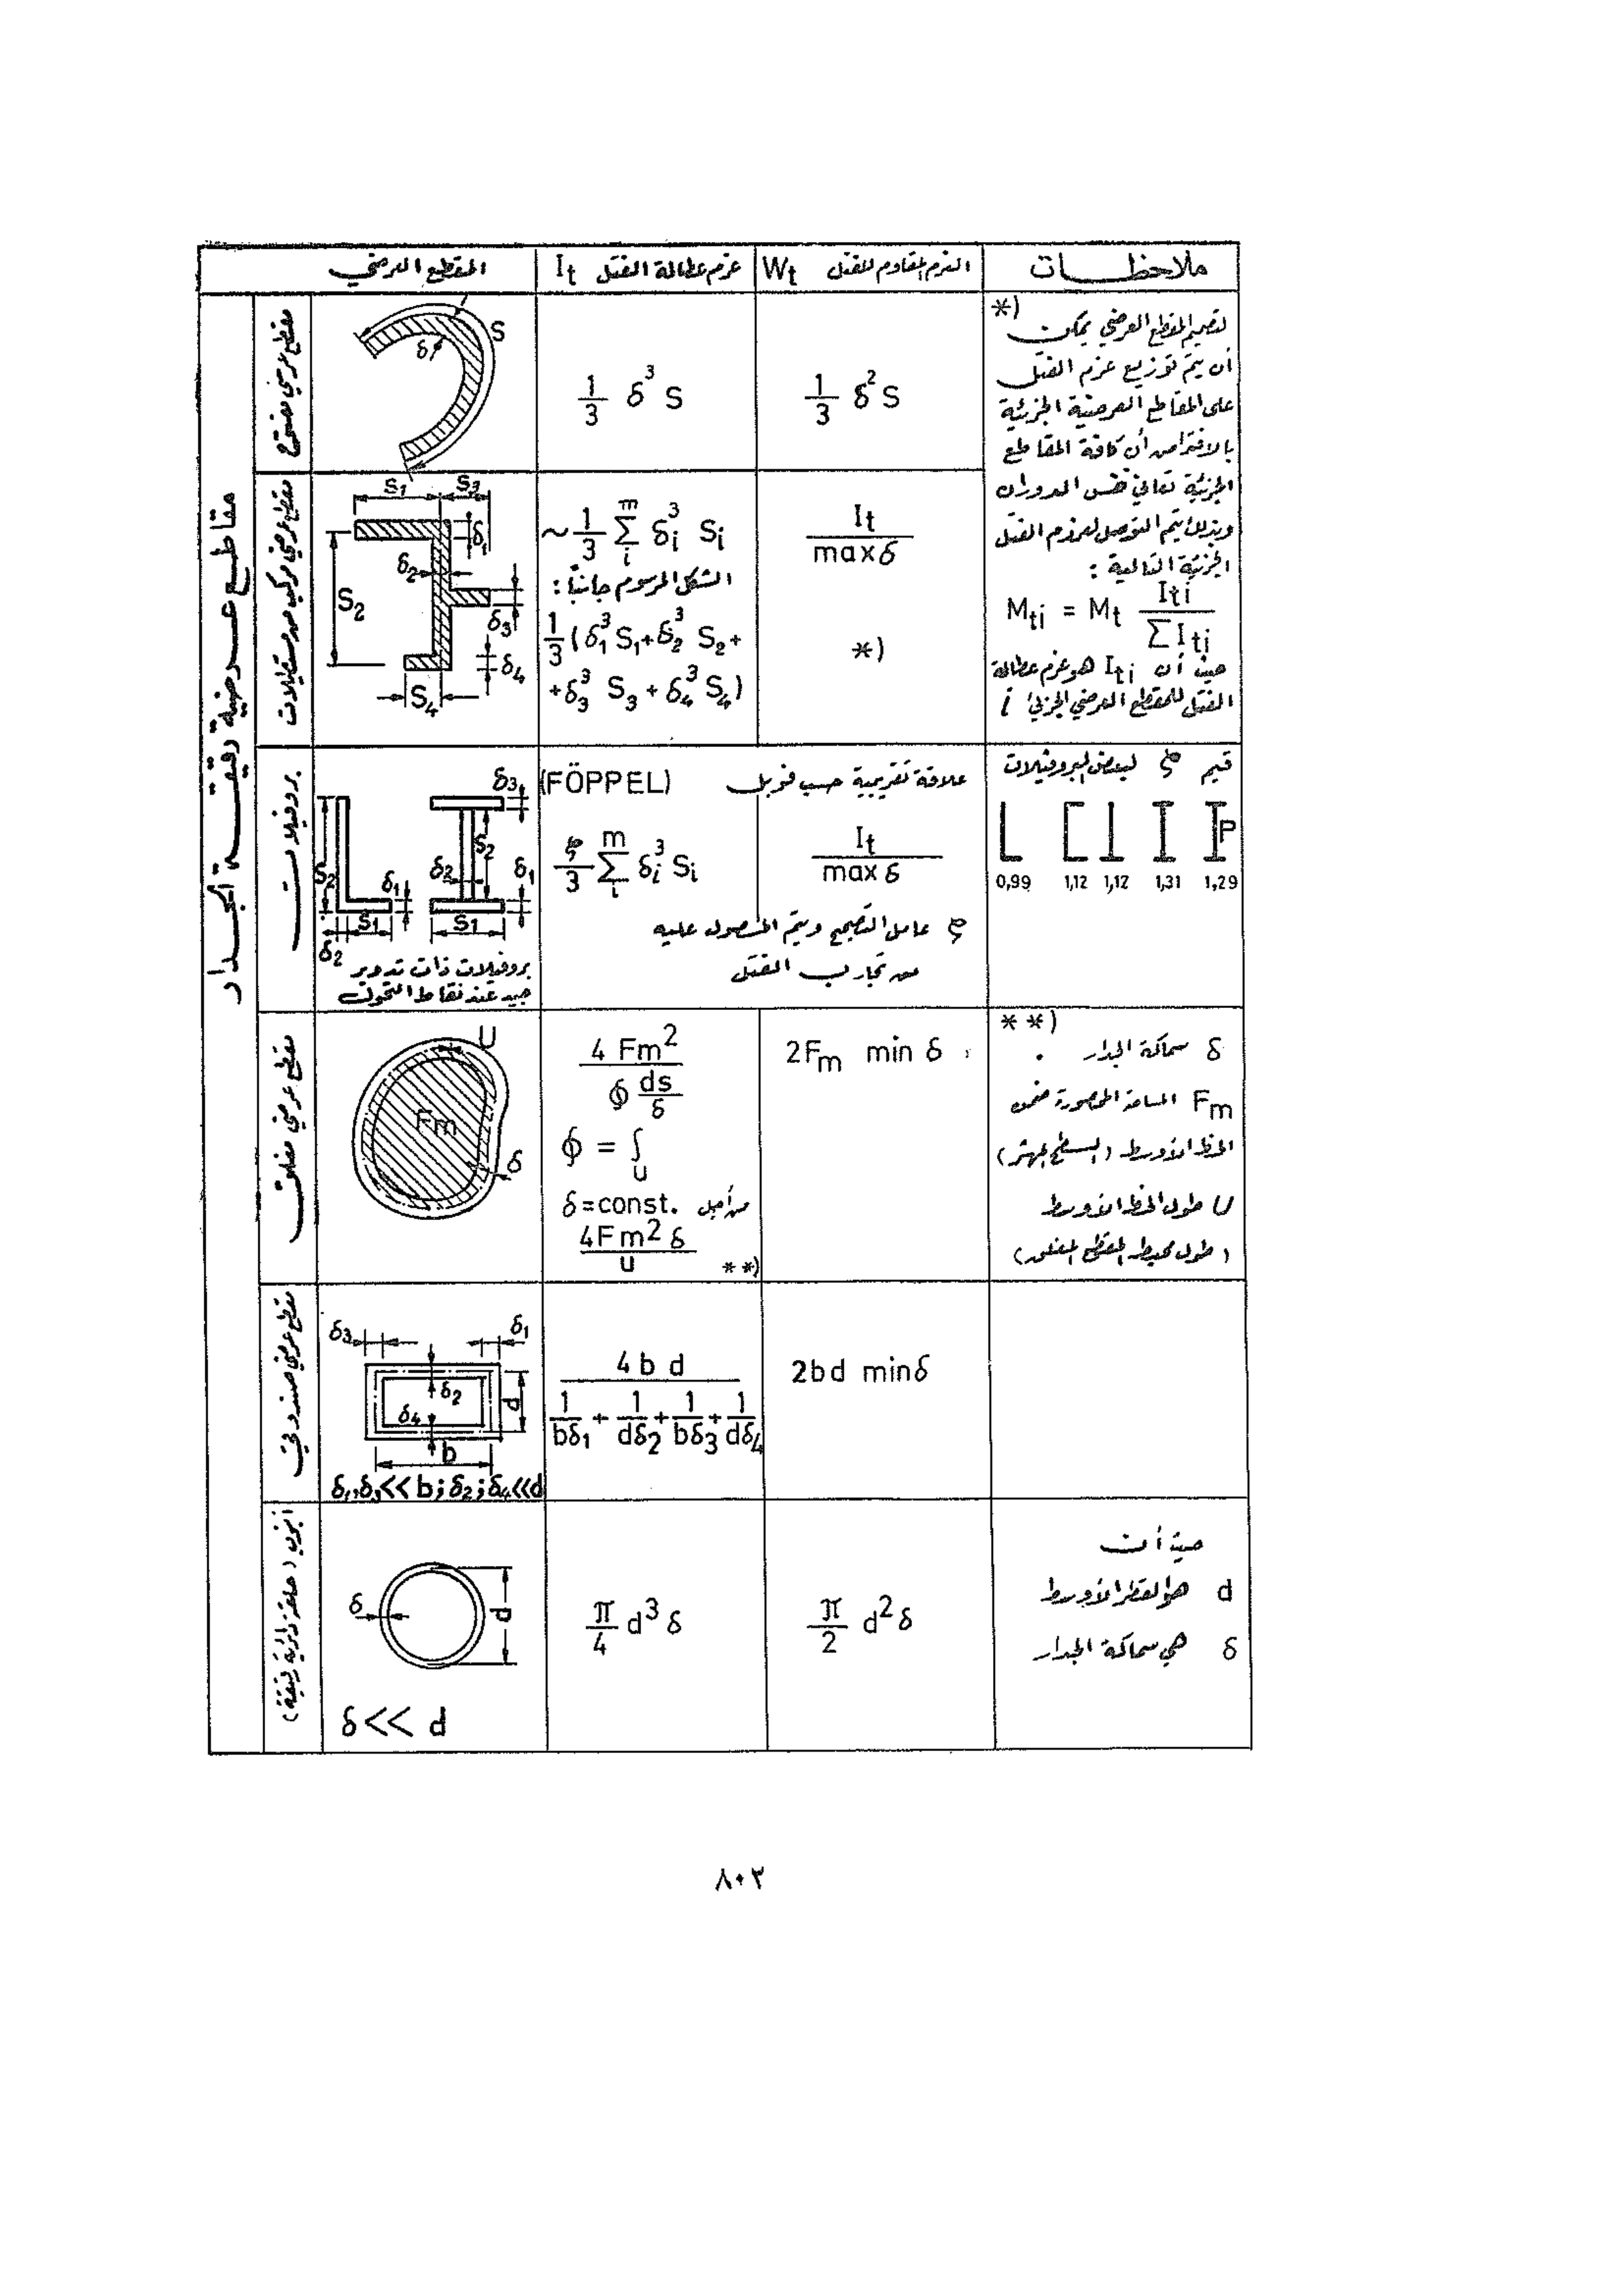 المقطع العرضي
عزم عطالة الفتل It
العزم المقاوم للفتل Wt
ملاحظـــات
مقاطع عرضية رقيقة الجدار
مقطع عرضي مفتوح
S
δ
1/3 δ³ S
1/3 δ² S
*)
لتصميم المقطع العرضي يمكن
أن يتم توزيع عزم الفتل
على المقاطع العرضية الجزئية
بالافتراض أن كافة المقاطع
الجزئية تعاني نفس الدوران
وبذلك يتم التوصل لعزم الفتل
الجزئية التالية :
Mti = Mt Iti / ∑Iti
حيث أن Iti هو عزم عطالة
الفتل للمقطع العرضي الجزئي i
مقطع عرضي مركب من مستطيلات
S1 S3
δ1
δ2
S2
δ3
δ4
S4
~ 1/3 ∑ᵢᵐ δi³ Si
الشكل المرسوم جانباً :
1/3 (δ1³ S1 + δ2³ S2 +
+ δ3³ S3 + δ4³ S4)
It / max δ
*)
بروفيلات
δ3
S2
δ2
S2
δ1
δ1
S1
S1
δ2
بروفيلات ذات تدوير
جيد عند نقاط التحول
(FÖPPEL) علاقة تقريبية حسب فوبل
ξ/3 ∑ᵢᵐ δi³ Si
It / max δ
ξ عامل التصحيح ويتم الحصول عليه
من تجارب الفتل
قيم ξ لبعض البروفيلات
P
0,99 1,12 1,12 1,31 1,29
مقطع عرضي مغلق
U
Fm
δ
4 Fm² / ∮ ds/δ
∮ = ∫U
من أجل δ = const.
4Fm² δ / U
**)
2Fm min δ
**)
δ سماكة الجدار .
Fm المساحة المحصورة ضمن
الخط الأوسط
U طول الخط الأوسط
(طول محيط المقطع
مقطع عرضي صندوقي
δ3 δ1
δ2
δ4
d
b
δ1,δ3<<b; δ2;δ4<<d
4 b d / (1/bδ1 + 1/dδ2 + 1/bδ3 + 1/dδ4)
2bd min δ
أنبوب (حلقة دائرية رقيقة)
δ
d
δ << d
π/4 d³ δ
π/2 d² δ
حيث أن
d هو القطر الأوسط
δ هي سماكة الجدار
٨٠٢